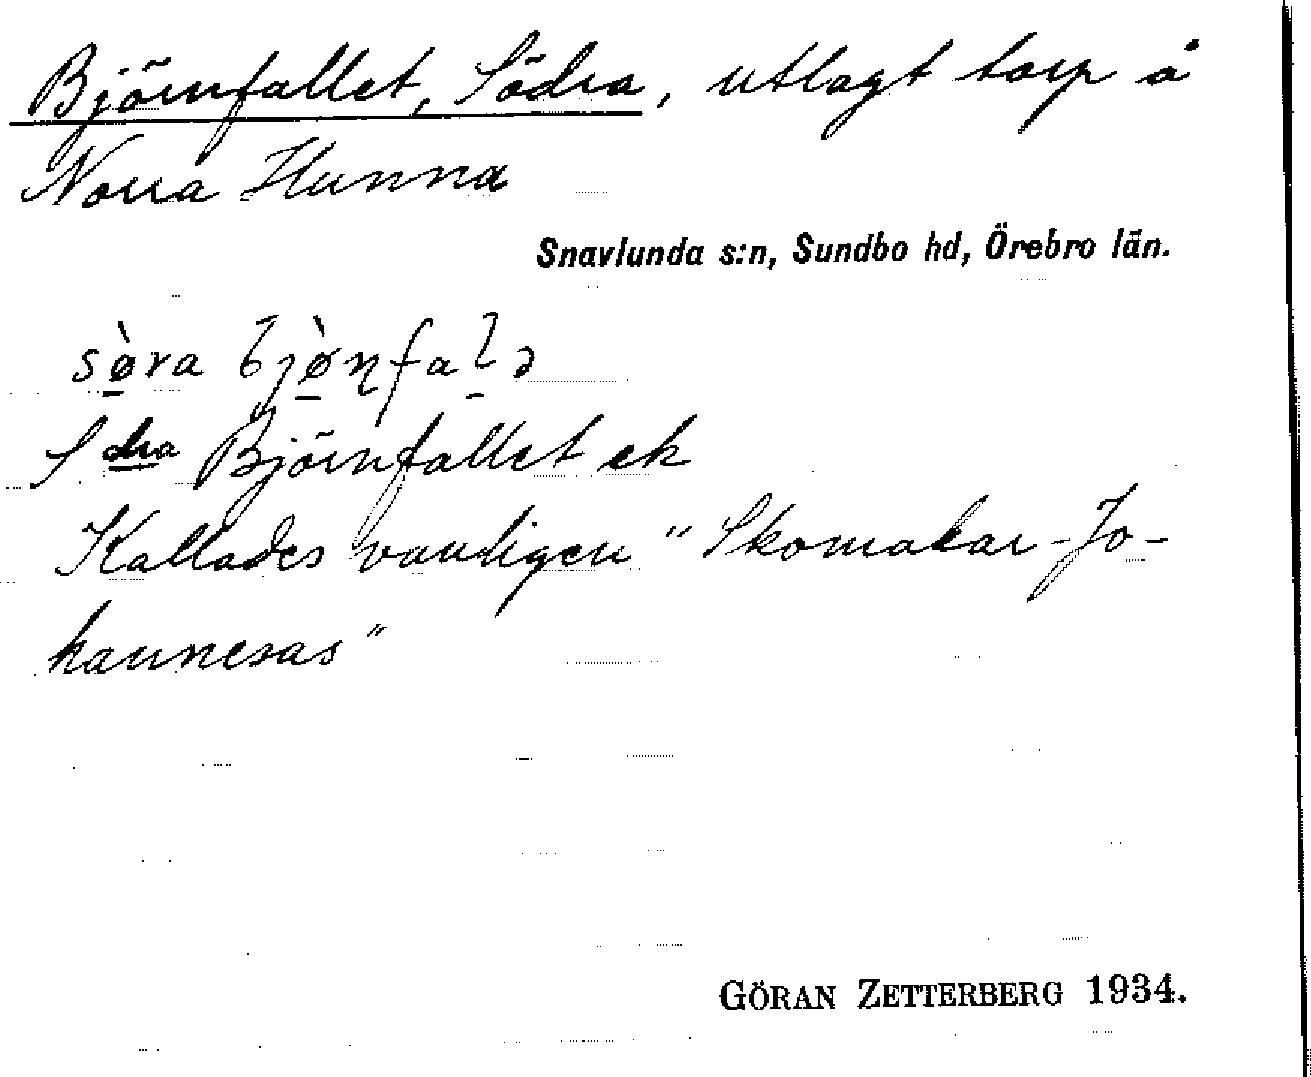 Björnfallet, Södra, utlagt torp å
Norra Hunna
Snavlunda s:n, Sundbo hd, Örebro län.
sø̀ra bjø̀ɳfalə
S dra Björnfallet ek
Kallades vanligen "Skomakar-Jo-
hannesas"
GÖRAN ZETTERBERG 1934.